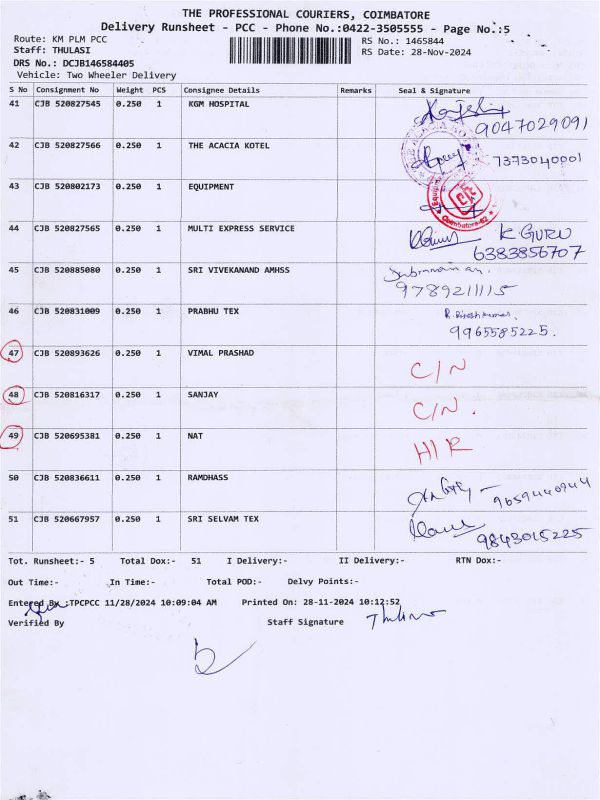 THE PROFESSIONAL COURIERS, COIMBATORE
Delivery Runsheet - PCC - Phone No.:0422-3505555 - Page No.:5
Route: KM PLM PCC RS No.: 1465844
Staff: THULASI RS Date: 28-Nov-2024
DRS No.: DCJB146584405
Vehicle: Two Wheeler Delivery
S No Consignment No Weight PCS Consignee Details Remarks Seal & Signature
41 CJB 520827545 0.250 1 KGM HOSPITAL
9047029091
42 CJB 520827566 0.250 1 THE ACACIA KOTEL 7373040001
43 CJB 520802173 0.250 1 EQUIPMENT
Coimbatore-62
44 CJB 520827565 0.250 1 MULTI EXPRESS SERVICE K GURU
6383856707
45 CJB 520885080 0.250 1 SRI VIVEKANAND AMHSS
9789211115
46 CJB 520831009 0.250 1 PRABHU TEX
9965585225.
47 CJB 520893626 0.250 1 VIMAL PRASHAD C/N
48 CJB 520816317 0.250 1 SANJAY C/N.
49 CJB 520695381 0.250 1 NAT
50 CJB 520836611 0.250 1 RAMDHASS 9659440944
51 CJB 520667957 0.250 1 SRI SELVAM TEX 9843015225
Tot. Runsheet:- 5 Total Dox:- 51 I Delivery:- II Delivery:- RTN Dox:-
Out Time:- In Time:- Total POD:- Delvy Points:-
Entered By :TPCPCC 11/28/2024 10:09:04 AM Printed On: 28-11-2024 10:12:52
Verified By Staff Signature